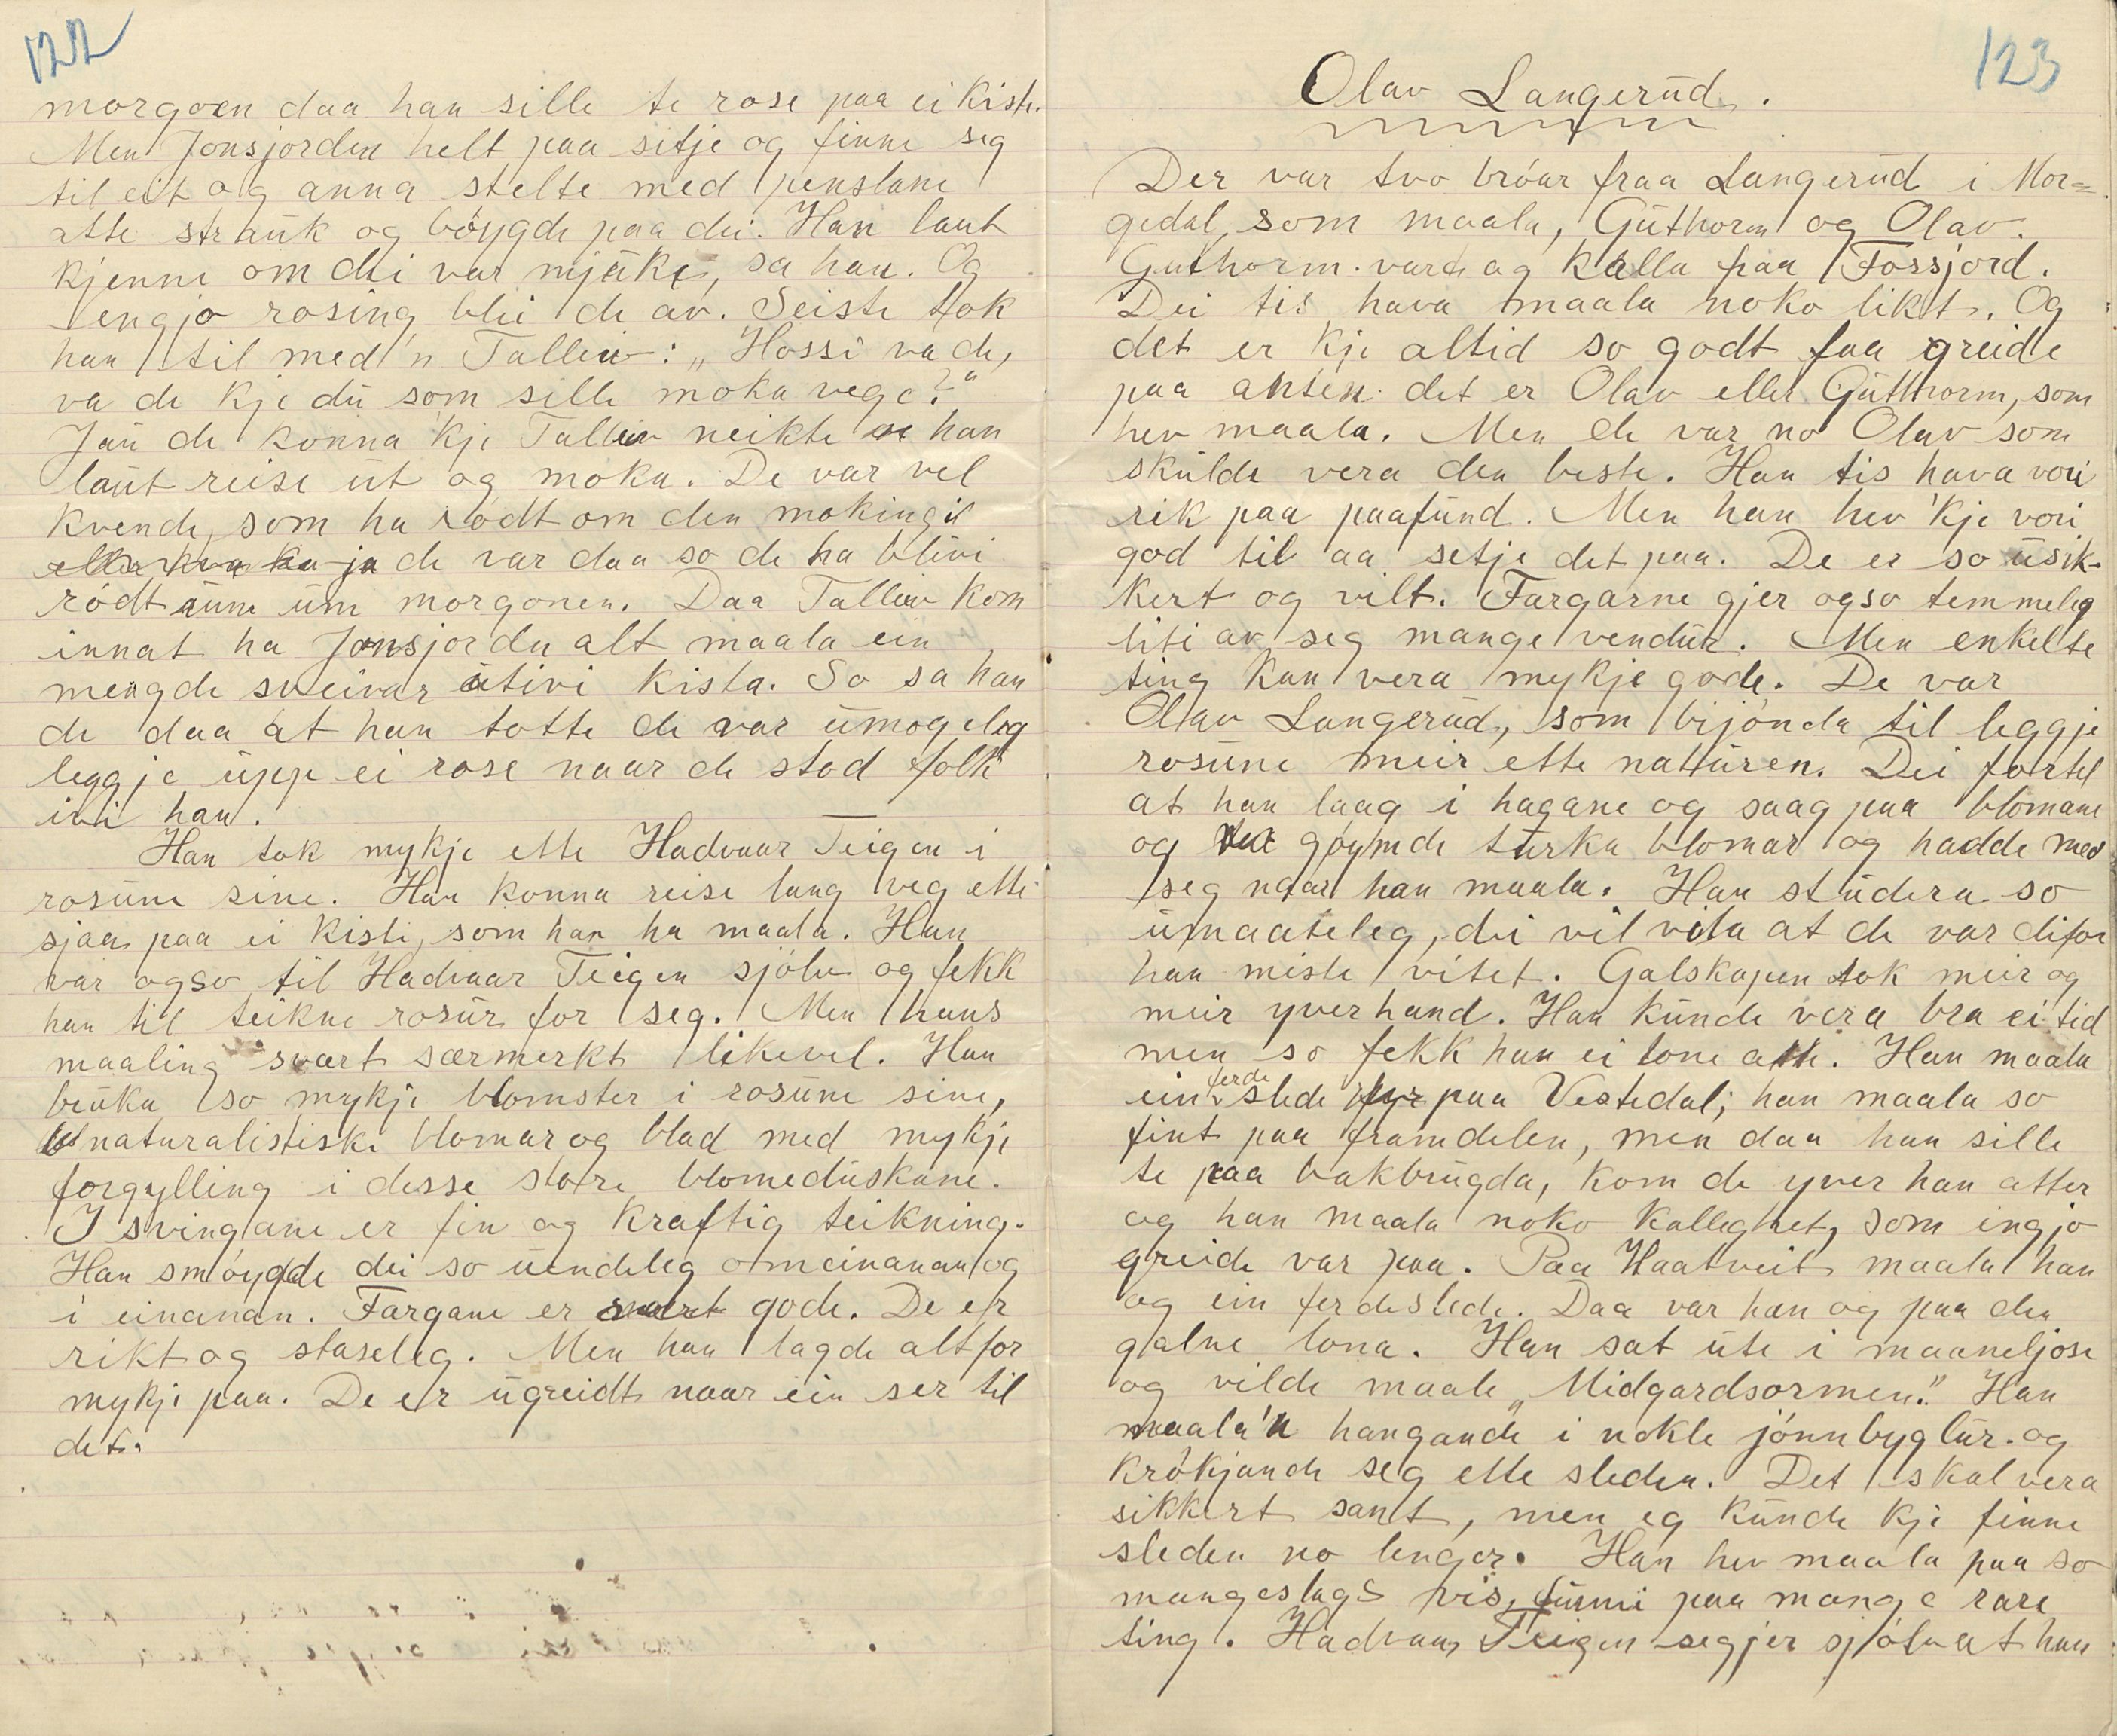 122
morgoen daa han sille te rose paa ei kiste.
Men Jonsjorden helt paa sitje og finne seg
til eit og anna stelte med penslane
atte strauk og bóygde paa dei. Han laut
kjenne om dei var mjuke, sa han. Og
engjo rosing blei de av. Seiste tok
han til med'n Talleiv: „Hossi va de,
va de kje du som sille moka vege?"
Jau de konna kje Talleiv neikte han
laut reise ut og moka. De var vel
kvende, som ha ródt om den mokingji
eller kva ka ja de var daa so de ha blivi
ródt aume um morgonen. Daa Talleiv kom
innat ha Jonsjorden alt maala ein
mengde sveivar utivi kista. So sa han
de daa at han totte de var umogeleg
leggje upp ei rose naar de stod folk
ivi han.
Han tok mykje ette Hadvaar Teigen i
rosune sine. Han konna reise lang veg ette
sjaa paa ei kiste, som han ha maala. Han
var ogso til Hadvaar Teigen sjólv og fekk
han til teikne rosur for seg. Men hans
maaling svært særmerkt likevel. Han
bruka so mykje blomster i rosune sine,
naturalistiske blomar og blad med mykje
forgylling i desse store blomeduskane.
I svingane er fin og kraftig teikning.
Han smóygde dei so uendeleg omeinanan og
i einanan. Fargane er svært gode. De er
rikt og staseleg. Men han lagde altfor
mykje paa. De er ugreidt naar ein ser til
det.
123
Olav Langerud.
Der var tvo bróar fraa Langerud i Mor=
gedal, som maala, Guthorm og Olav.
Guthorm vard og kalla paa Fossjord.
Dei tis hava maala noko likt. Og
det er kje altid so godt faa greide
paa anten det er Olav eller Gutthorm, som
hev maala. Men de var no Olav som
skulde vera den beste. Han tis hava vori
rik paa paafund. Men han hev 'kje vori
god til aa setje det paa. De er so usik-
kert og vilt. Fargarne gjer ogso temmeleg
liti av seg mange vendur. Men enkelte
ting kan vera mykje gode. De var
Olav Langerud, som bijónda til leggje
rosune meir ette naturen. Dei fortel
at han laag i hagane og saag paa blomane
og góymde turka blomar og hadde med
seg naar han maala. Han studera so
umaateleg, dei vil vita at de var difor
han miste vitet. Galskapen tok meir og
meir yverhand. Han kunde vera bra ei tid
men so fekk han ei lone atte. Han maala
ein ferde slede fyr paa Vestedal; han maala so
fint paa framdelen, men daa han sille
te paa bakbrugda, kom de yver han atter
og han maala noko kalleghet, som ingjo
greide var paa. Paa Haatveit maala han
og ein ferdeslede. Daa var han og paa den
galne lona. Han sat ute i maaneljose
og vilde maale „Midgardsormen." Han
maala'n hangande i nokle jónnbyglur og
krókjande seg ette sleden. Det skal vera
sikkert sant, men eg kunde kje finne
sleden no lenger. Han hev maala paa so
mangeslags vis, funni paa mange rare
ting. Hadvaar Teigen segjer sjólv at han